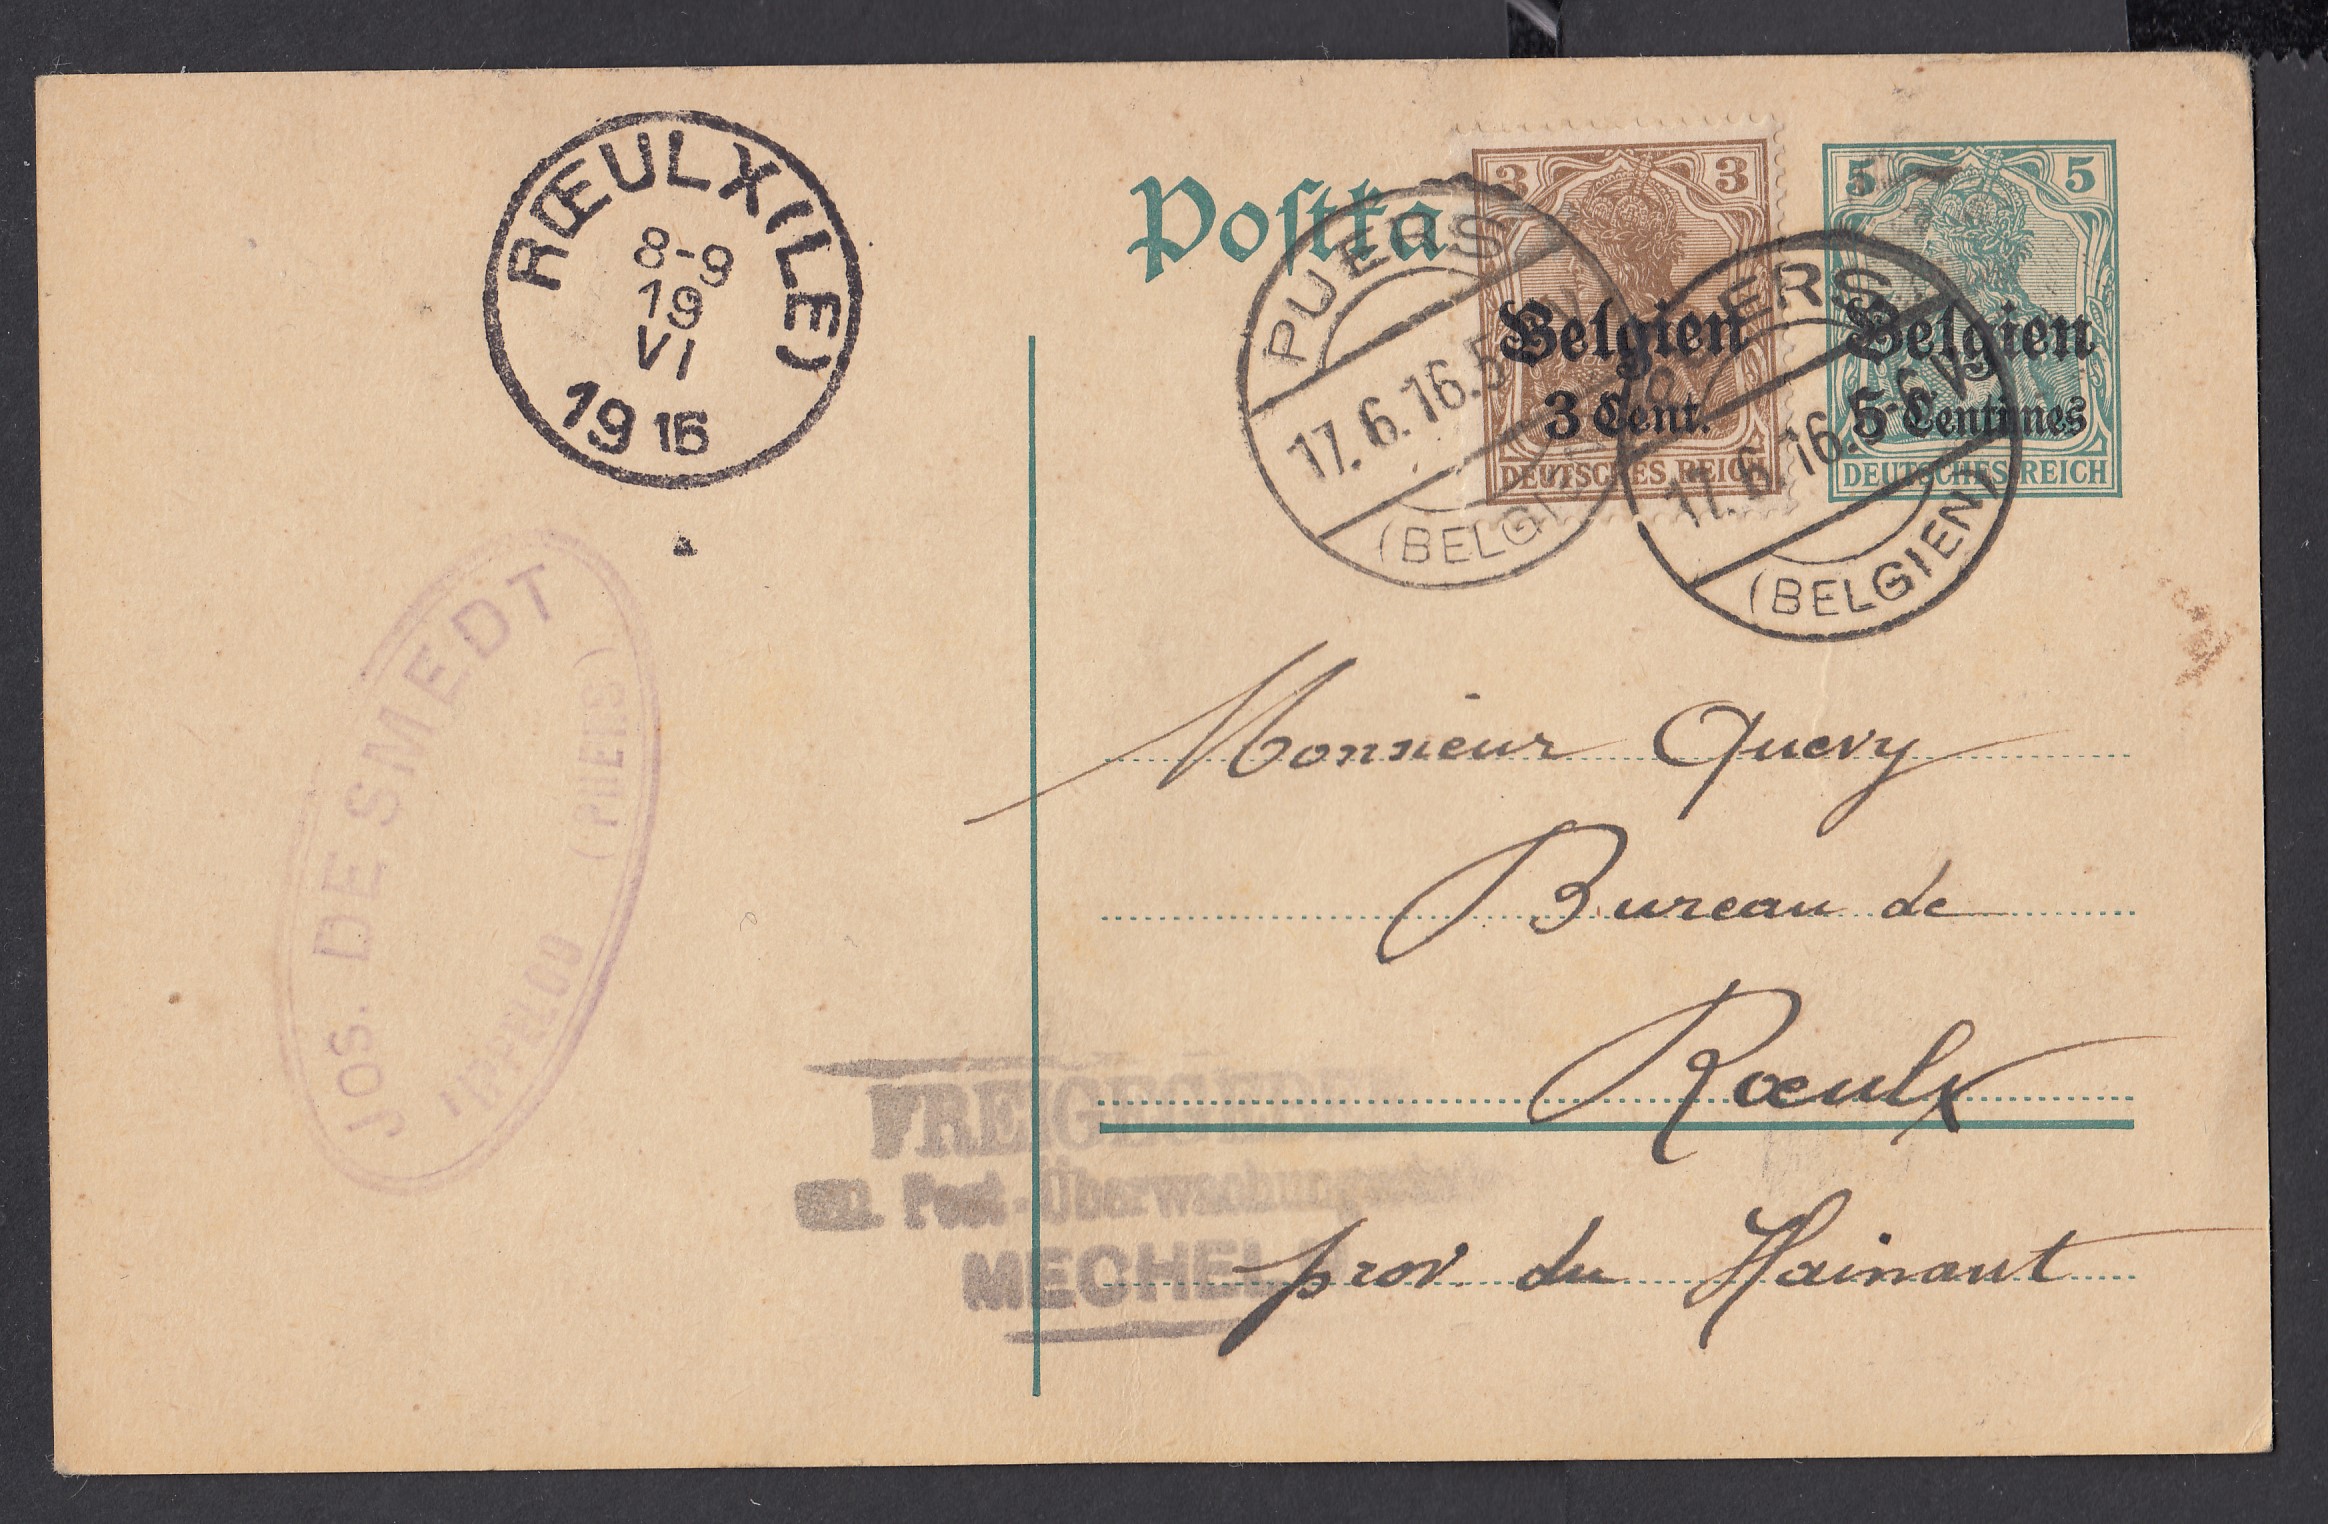 RŒULX (LE)
8-9
19
VI
1916
Postka
3 3
Belgien
3 Cent.
DEUTSCHES REICH
5 5
Belgien
5 Centimes
DEUTSCHES REICH
PUERS
17.6.16.5
(BELGI
PUERS
17.6.16.5-6 V.
(BELGIEN)
JOS. DE SMEDT
LIPPELOO (PUERS)
Monsieur Quevy
Bureau de
Rœulx
prov. du Hainaut
FREIGEGEBEN
Post-Überwachungsstelle
MECHELN